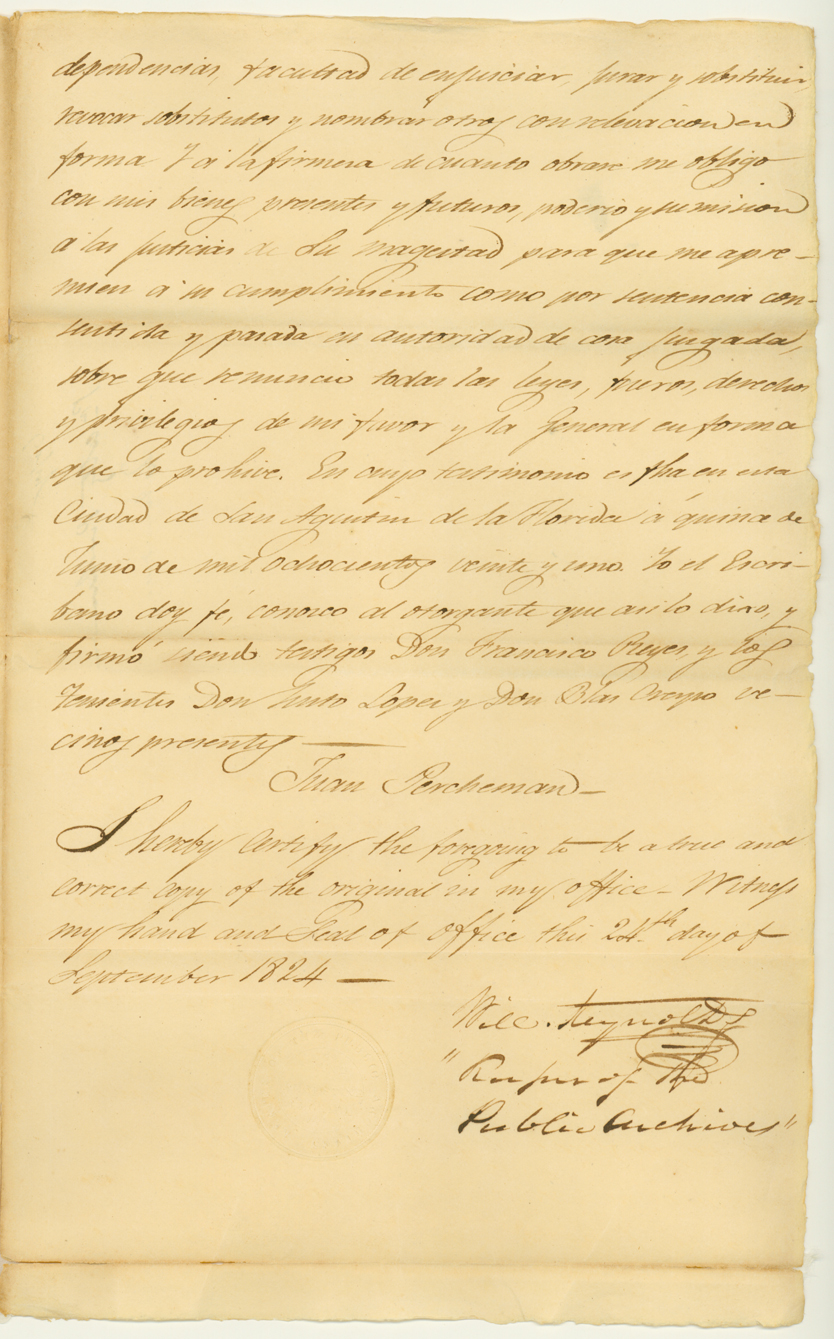 dependencias, facultad de enjuiciar, jurar y sobstituir,
revocar sobstitutos y nombrar otros con relevacion en
forma Y á la firmeza de cuanto obrare me obligo
con mis bienes presentes y futuros, poderio y sumision
á las justicias de Su Magestad para que me apre-
mien á su cumplimiento como por sentencia con-
sentida y pasada en autoridad de cosa juzgada,
sobre que renuncio todas las leyes, fueros, derechos
y privilegios de mi favor y la General en forma
que lo prohive. En cuyo testimonio es fha en esta
Ciudad de San Agustin de la Florida á quince de
Junio de mil ochocientos veinte y uno. Yo el Escri-
bano doy fé, conosco al otorgante que asi lo dixo, y
firmó siendo testigos Don Francisco Reyes, y los
Tenientes Don Justo Lopez y Don Blas Crespo ve-
cinos presentes —
Juan Percheman —
I hereby Certify the foregoing to be a true and
correct copy of the original in my office – Witness
my hand and Seal of office this 24th day of
September 1824 —
Will. Reynolds
"Keeper of the
Public Archives"